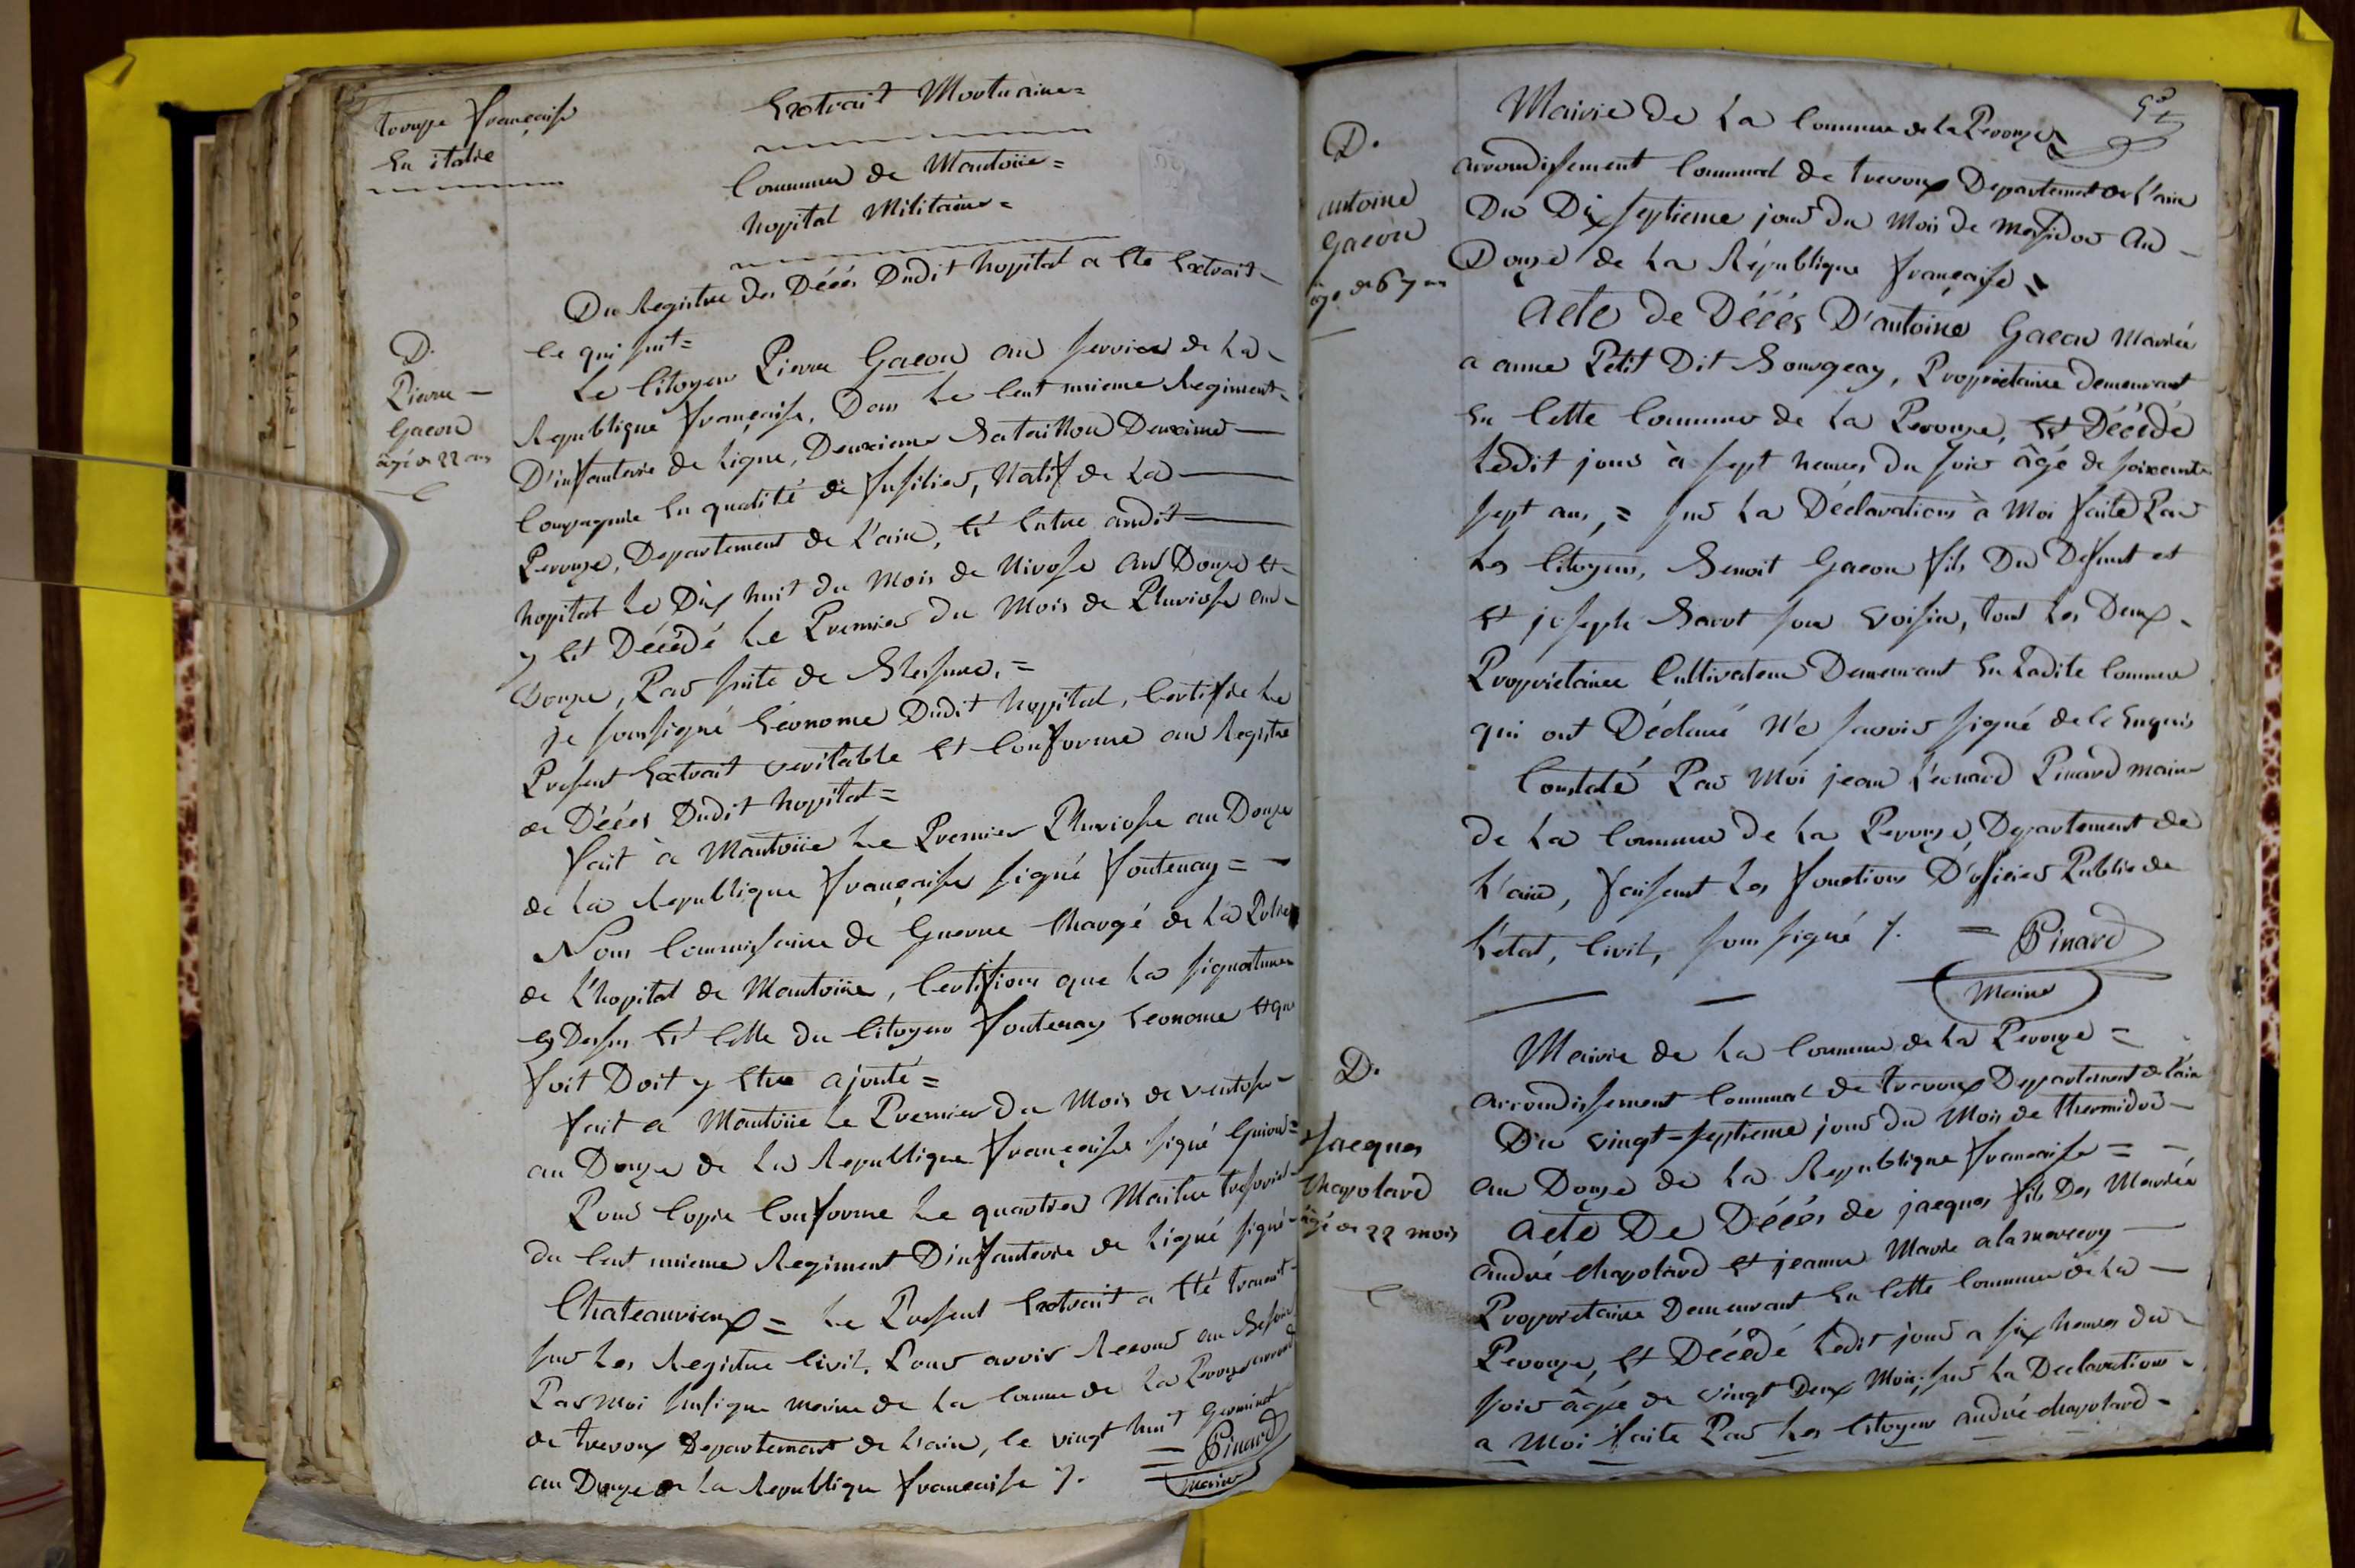 troupe française
En italie
Extrait Mortuaire =
Commune de Mantoüe =
hopital Militaire =
Du Registre des Décés Dudit hopital a Eté Extrait
Ce qui suit =
D.
Pierre
Gacon
âgé de 22 ans
Le Citoyen Pierre Gacon au service de La
Republique française, Dans Le Cent unieme Regiment
D'infanterie de Ligne, Deuxieme Bataillon Deuxieme
Compagnie En qualité de fusilier, Natif de La
Perouze, Departement de L'ain, Est Entré audit
hopital Le Dix huit du Mois de Nivose an Douze et
y Est Décédé Le Premier du Mois de Pluviose an
Douze, Par suite de Blessure, =
je soussigné Léconome Dudit hopital, Certifie Le
Present Extrait veritable Et Conforme au Registre
de Décés Dudit hopital =
fait à Mantoüe Le Premier Pluviose an Douze
de La Republique française signé fontenay =
Nous Commissaire de Guerre Chargé de La Police
de L'hopital de Mantoüe, Certifions que La signature
cy Dessus Est Celle du Citoyen fontenay Econome Et que
foit Doit y Etre ajouté =
fait a Mantoüe Le Premier Du Mois de ventose
an Douze de La Republique française signé Guion =
Pour Copie Conforme Le quartier Maitre tresorier
du Cent unieme Regiment D'infanterie de Ligne signé
Chateauvieux = Le Present Extrait a Eté transcrit
sur Les Registre Civil, Pour avoir Recour au Besoin
Par moi susigne maire de La Comune de La Perouze
de trevoux Departement de L'ain, le vingt huit germinal
an Douze de La Republique française /. = Pinard
maire
Mairie de La Commune de La Perouze
arrondissement Communal de trevoux Departement de L'ain
Du Dix septieme jour du Mois de Messidor an
Douze de La République française =
D.
antoine
Gacon
âgé de 67 ans
acte de Décés D'antoine Gacon Mariée
a anne Petit Dit Bourgeay, Proprietaire demeurant
En Cette Commune de La Perouze, Est Décédé
Ledit jour à sept heures du soir âgé de soixante
sept ans, = sur La Déclaration à Moi faite Par
Les Citoyens, Benoit Gacon fils Du Defunt et
Et joseph Barot son voisin, tous Les Deux
Proprietaire Cultivateur Demeurant En Ladite Commune
qui ont Déclaré N'e savoir signé de Ce Enquis
Constaté Par Moi jean Léonard Pinard maire
de La Commune de La Perouze, Departement de
L'ain, faisant Les fonctions D'oficier Public de
L'etat, Civil, sous signé /. = Pinard
Maire
Mairie de La Commune de La Perouze =
arrondissement Communal de trevoux Departement de L'ain
Du vingt-septieme jour du Mois de thermidor
an Douze de La Republique francaise =
D.
Jacques
Chapolard
âgé de 22 mois
acte De Décés de jacques fils Des Mariée
andré chapolard Et jeanne Marie alamercery
Proprietaire Demeurant En Cette Commune de La
Perouze, Est Décédé Ledit jour a six heures du
soir âgée de vingt Deux Mois, sur La Declaration
a Moi faite Par Les Citoyens andré chapolard